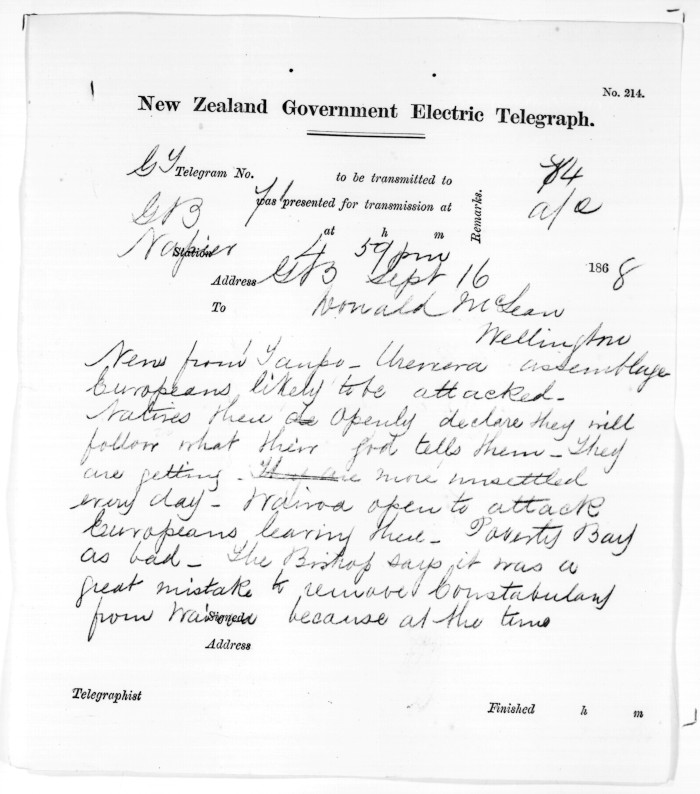 No. 214.
New Zealand Government Electric Telegraph.
GY Telegram No. to be transmitted to 84
GB 71 was presented for transmission at Remarks. a/c
at h m
Napier Station 4 59 pm
Address GB Sept 16 1868
To Donald McLean
Wellington
News from Taupo - Urewera assemblage
Europeans likely to be attacked -
Natives there do Openly declare they will
follow what their god tells them - They
are getting - They are more unsettled
every day - Wairoa open to attack
Europeans leaving there - Poverty Bay
as bad - The Bishop says it was a
great mistake to remove Constabulary
from Wairoa Signed because at the time
Address
Telegraphist
Finished h m